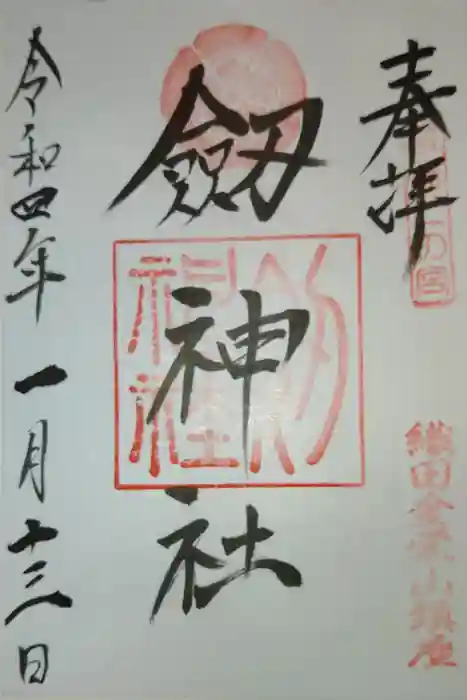 奉拝
織田金栄山鎮座
劔神社
劔神社
令和四年一月十三日